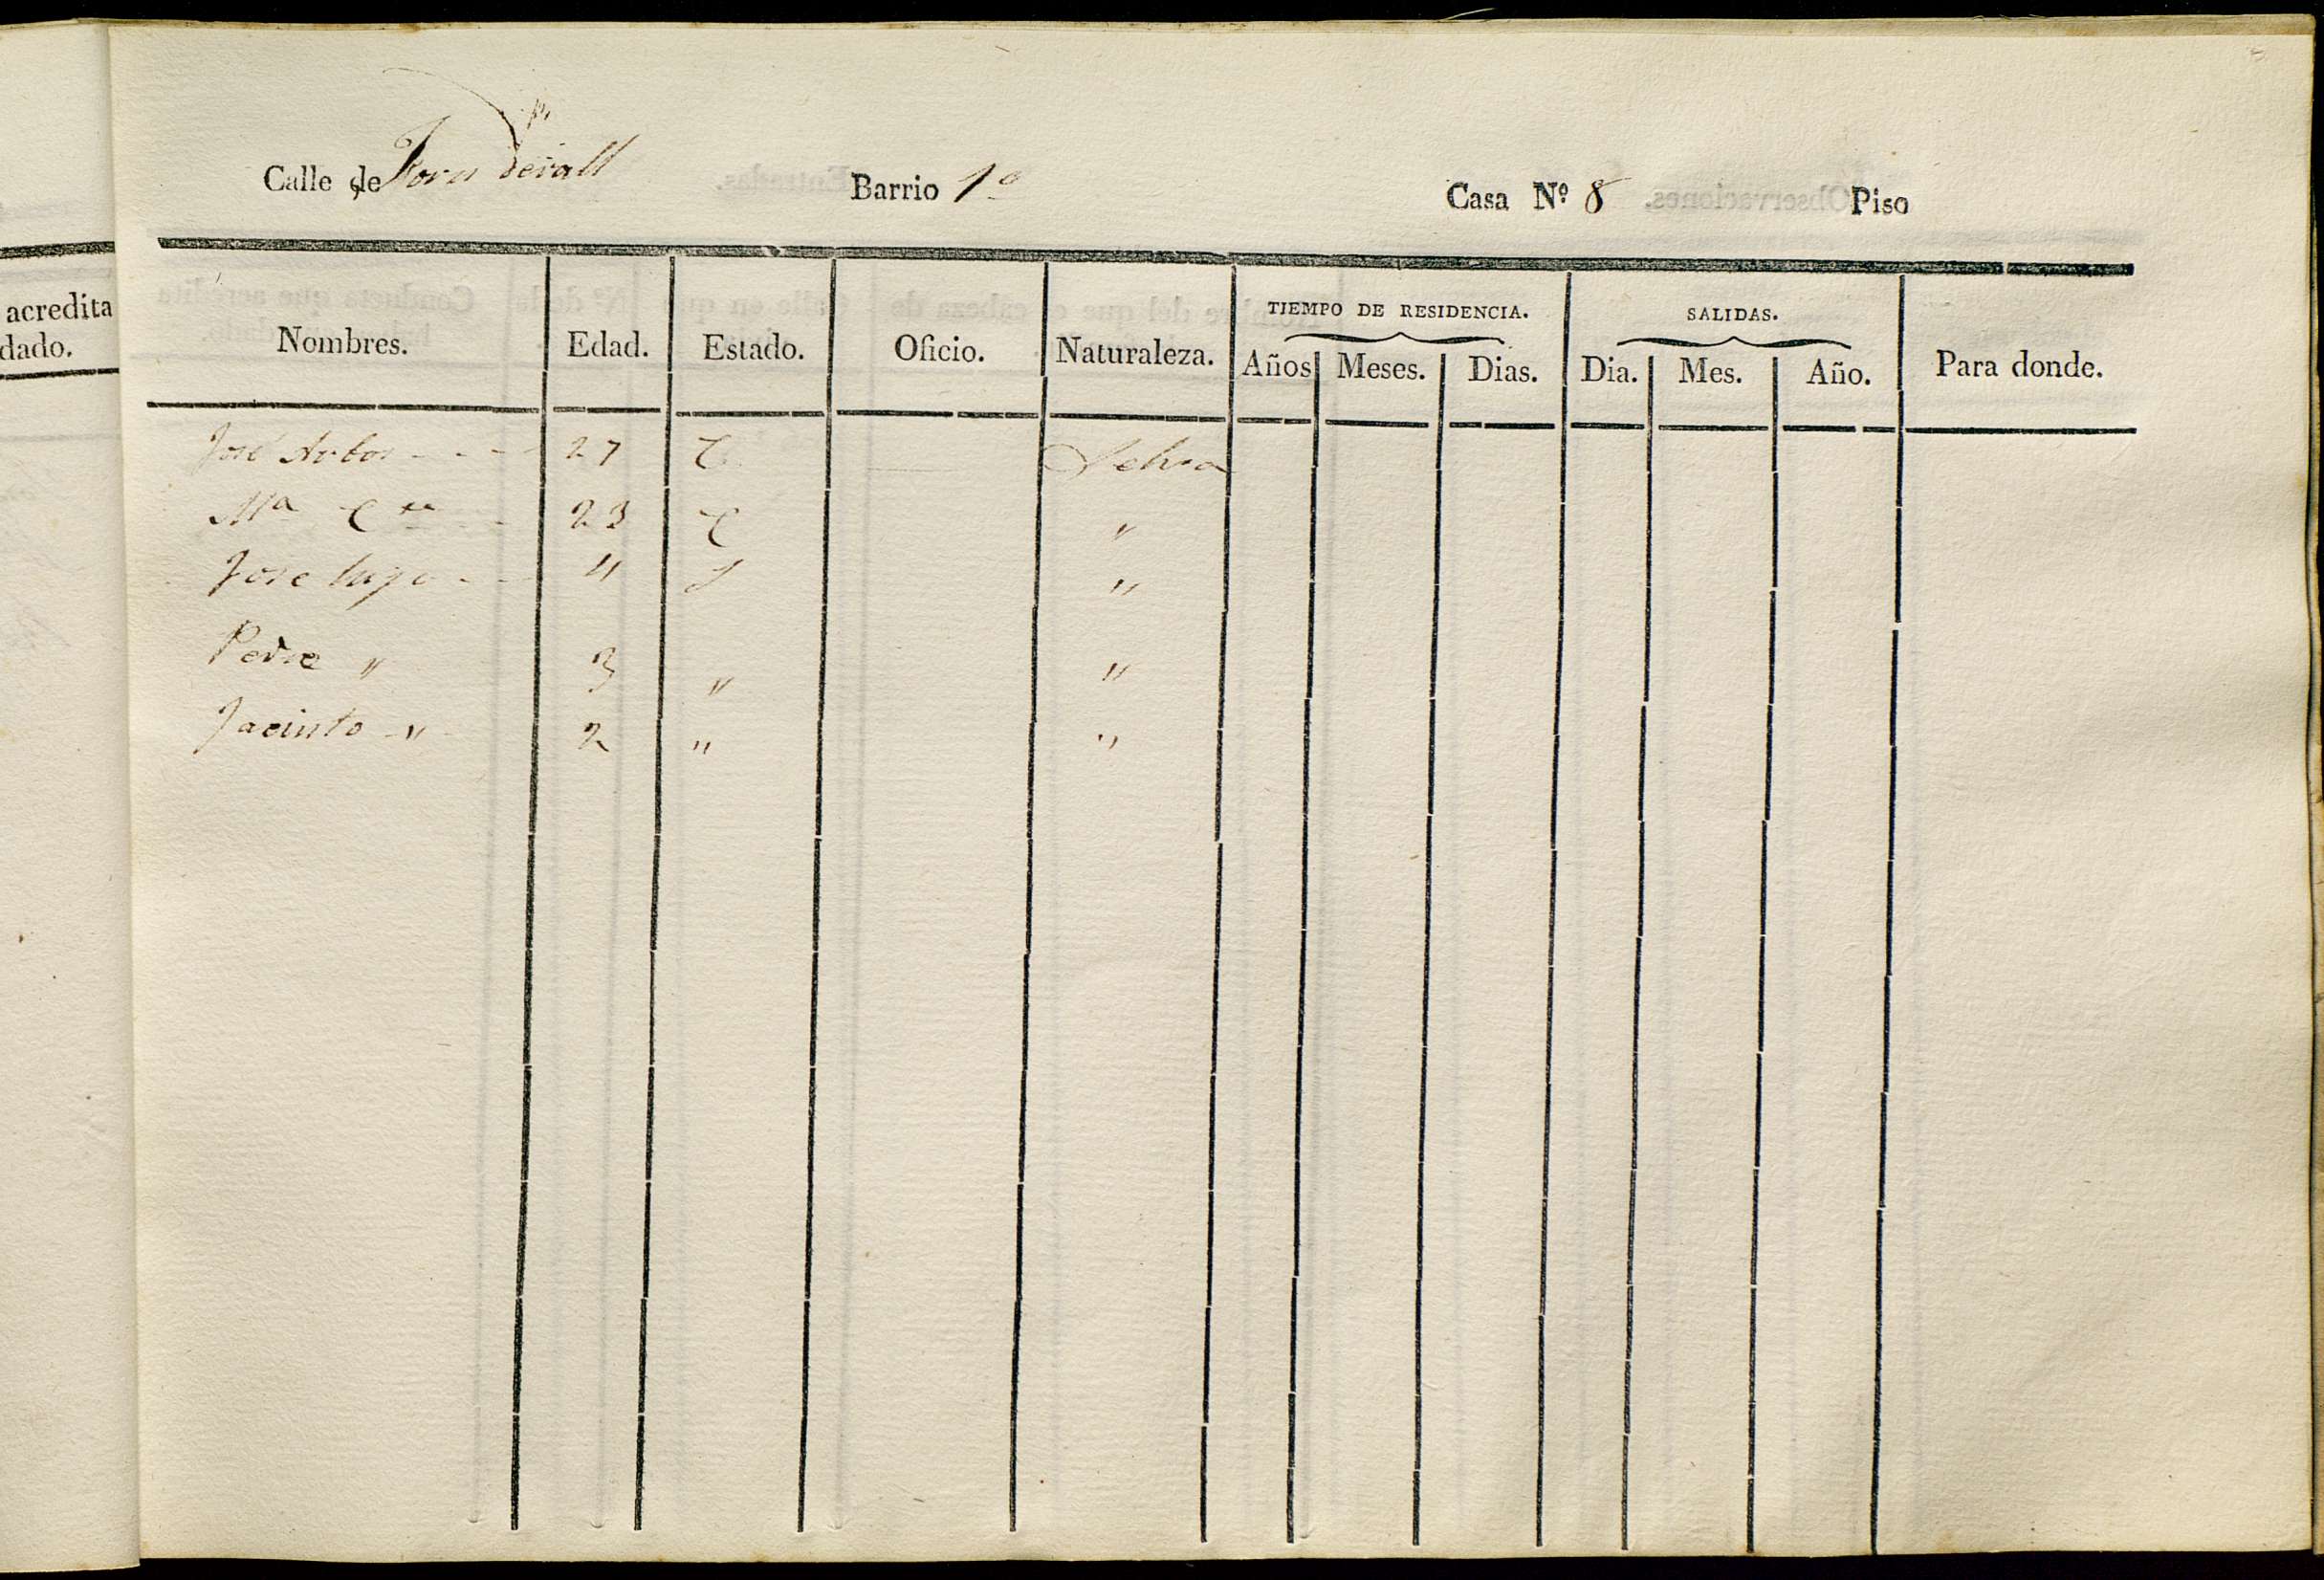 acredita
dado.
Calle de Forn devall Barrio 1º Casa Nº 8 Piso
Nombres. Edad. Estado. Oficio. Naturaleza. TIEMPO DE RESIDENCIA. SALIDAS. Para donde.
Años Meses. Dias. Dia. Mes. Año.
José Arbos - - - 27 C Selva
Mª C 23 C "
Jose hijo - - 4 S "
Pedro " 3 " "
Jacinto - " - 2 " "